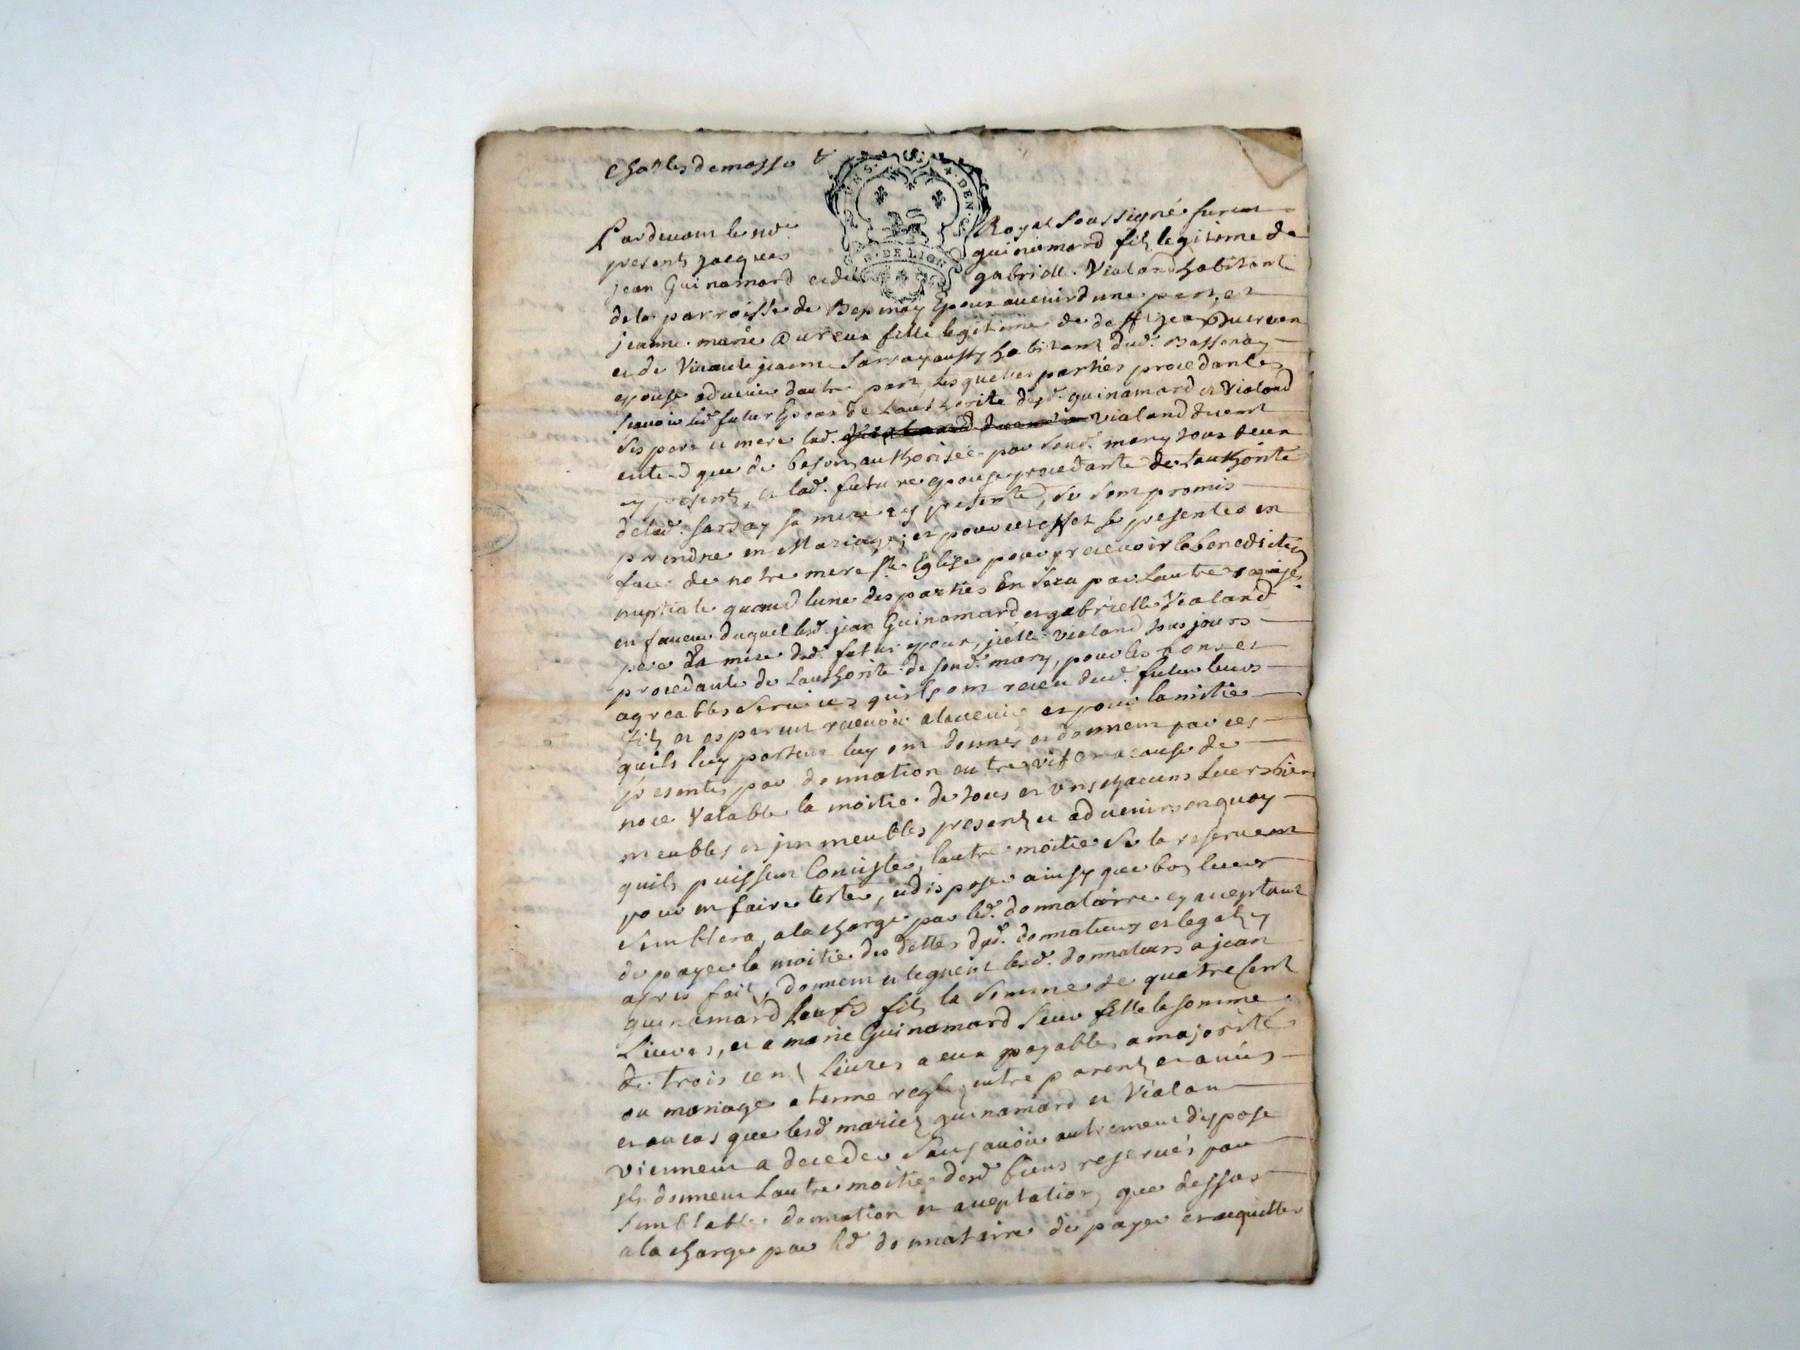 Charles demasso &
DEUX SOLS DEN.
G. DE LION
Pardevant le nore Royal Soussigné furent
presents jacques guinamard fils legitime de
jean Guinamard et de gabrielle Vialand habitant
dela parroisse de Epoux avenir dune part, et
jeanne marie fille legitime de deffunct
et de jeanne Sarsay aussy habitant dud.
epouse advenir dautre part, lesquelles parties procedantes
Scavoir led. futur Epoux de Lauthorité desd. guinamard et Vialand
Ses pere et mere lad. Vialand
entend que de besoin authorisée par Sond. mary tous deux
cy presents, et lad. future epouse procedante de Lauthorité
delad. Sarsay sa mere cy presente, Se Sont promis
prendre en Mariage; et pour cet effet se presenter en
face de notre mere Ste Eglise pour y recevoir la benediction
nuptiale quand lune des parties En Sera par Lautre requise
en faveur duquel lesd. jean Guinamard et gabrielle Vialand
pere & mere dud. futur epoux, icelle Vialand tousjours
procedante de Lauthorité de Sond. mary, pour les bons et
agreables Services quils ont receu dud. futur leurs
fils et esperent recevoir alavenir et pour lamitié
quils luy portent luy ont donnés et donnent par ces
presentes par donnation entre vif et a cause de
noce Valable la moitié de tous et uns chacuns Leurs biens
meubles et jmmeubles presents et advenirs en quoy
quils puissent Consister, lautre moitié Se la reservent
pour en faire tester, et disposer ainsy que bon leur
Semblera, ala charge par led. donnataire cy acceptant
de payer la moitié des dettes dud. donnateurs et legats cy
apres fait, donnent et leguent lesd. donnateurs a jean
guinamard fils la Somme de quatre Cent
Livres, et a marie Guinamard Leur fille la somme
de trois cent Livres a eux payables a majorité
ou mariage a terme reglé entre parents et amis
et au cas que lesd. mariés guinamard et Vialan
viennent a deceder Sans avoir autrement disposé
ils donnent Lautre moitié desd. biens reservés par
Semblable donnation et acceptation que dessus
ala charge par led. donnataire de payer et acquitter